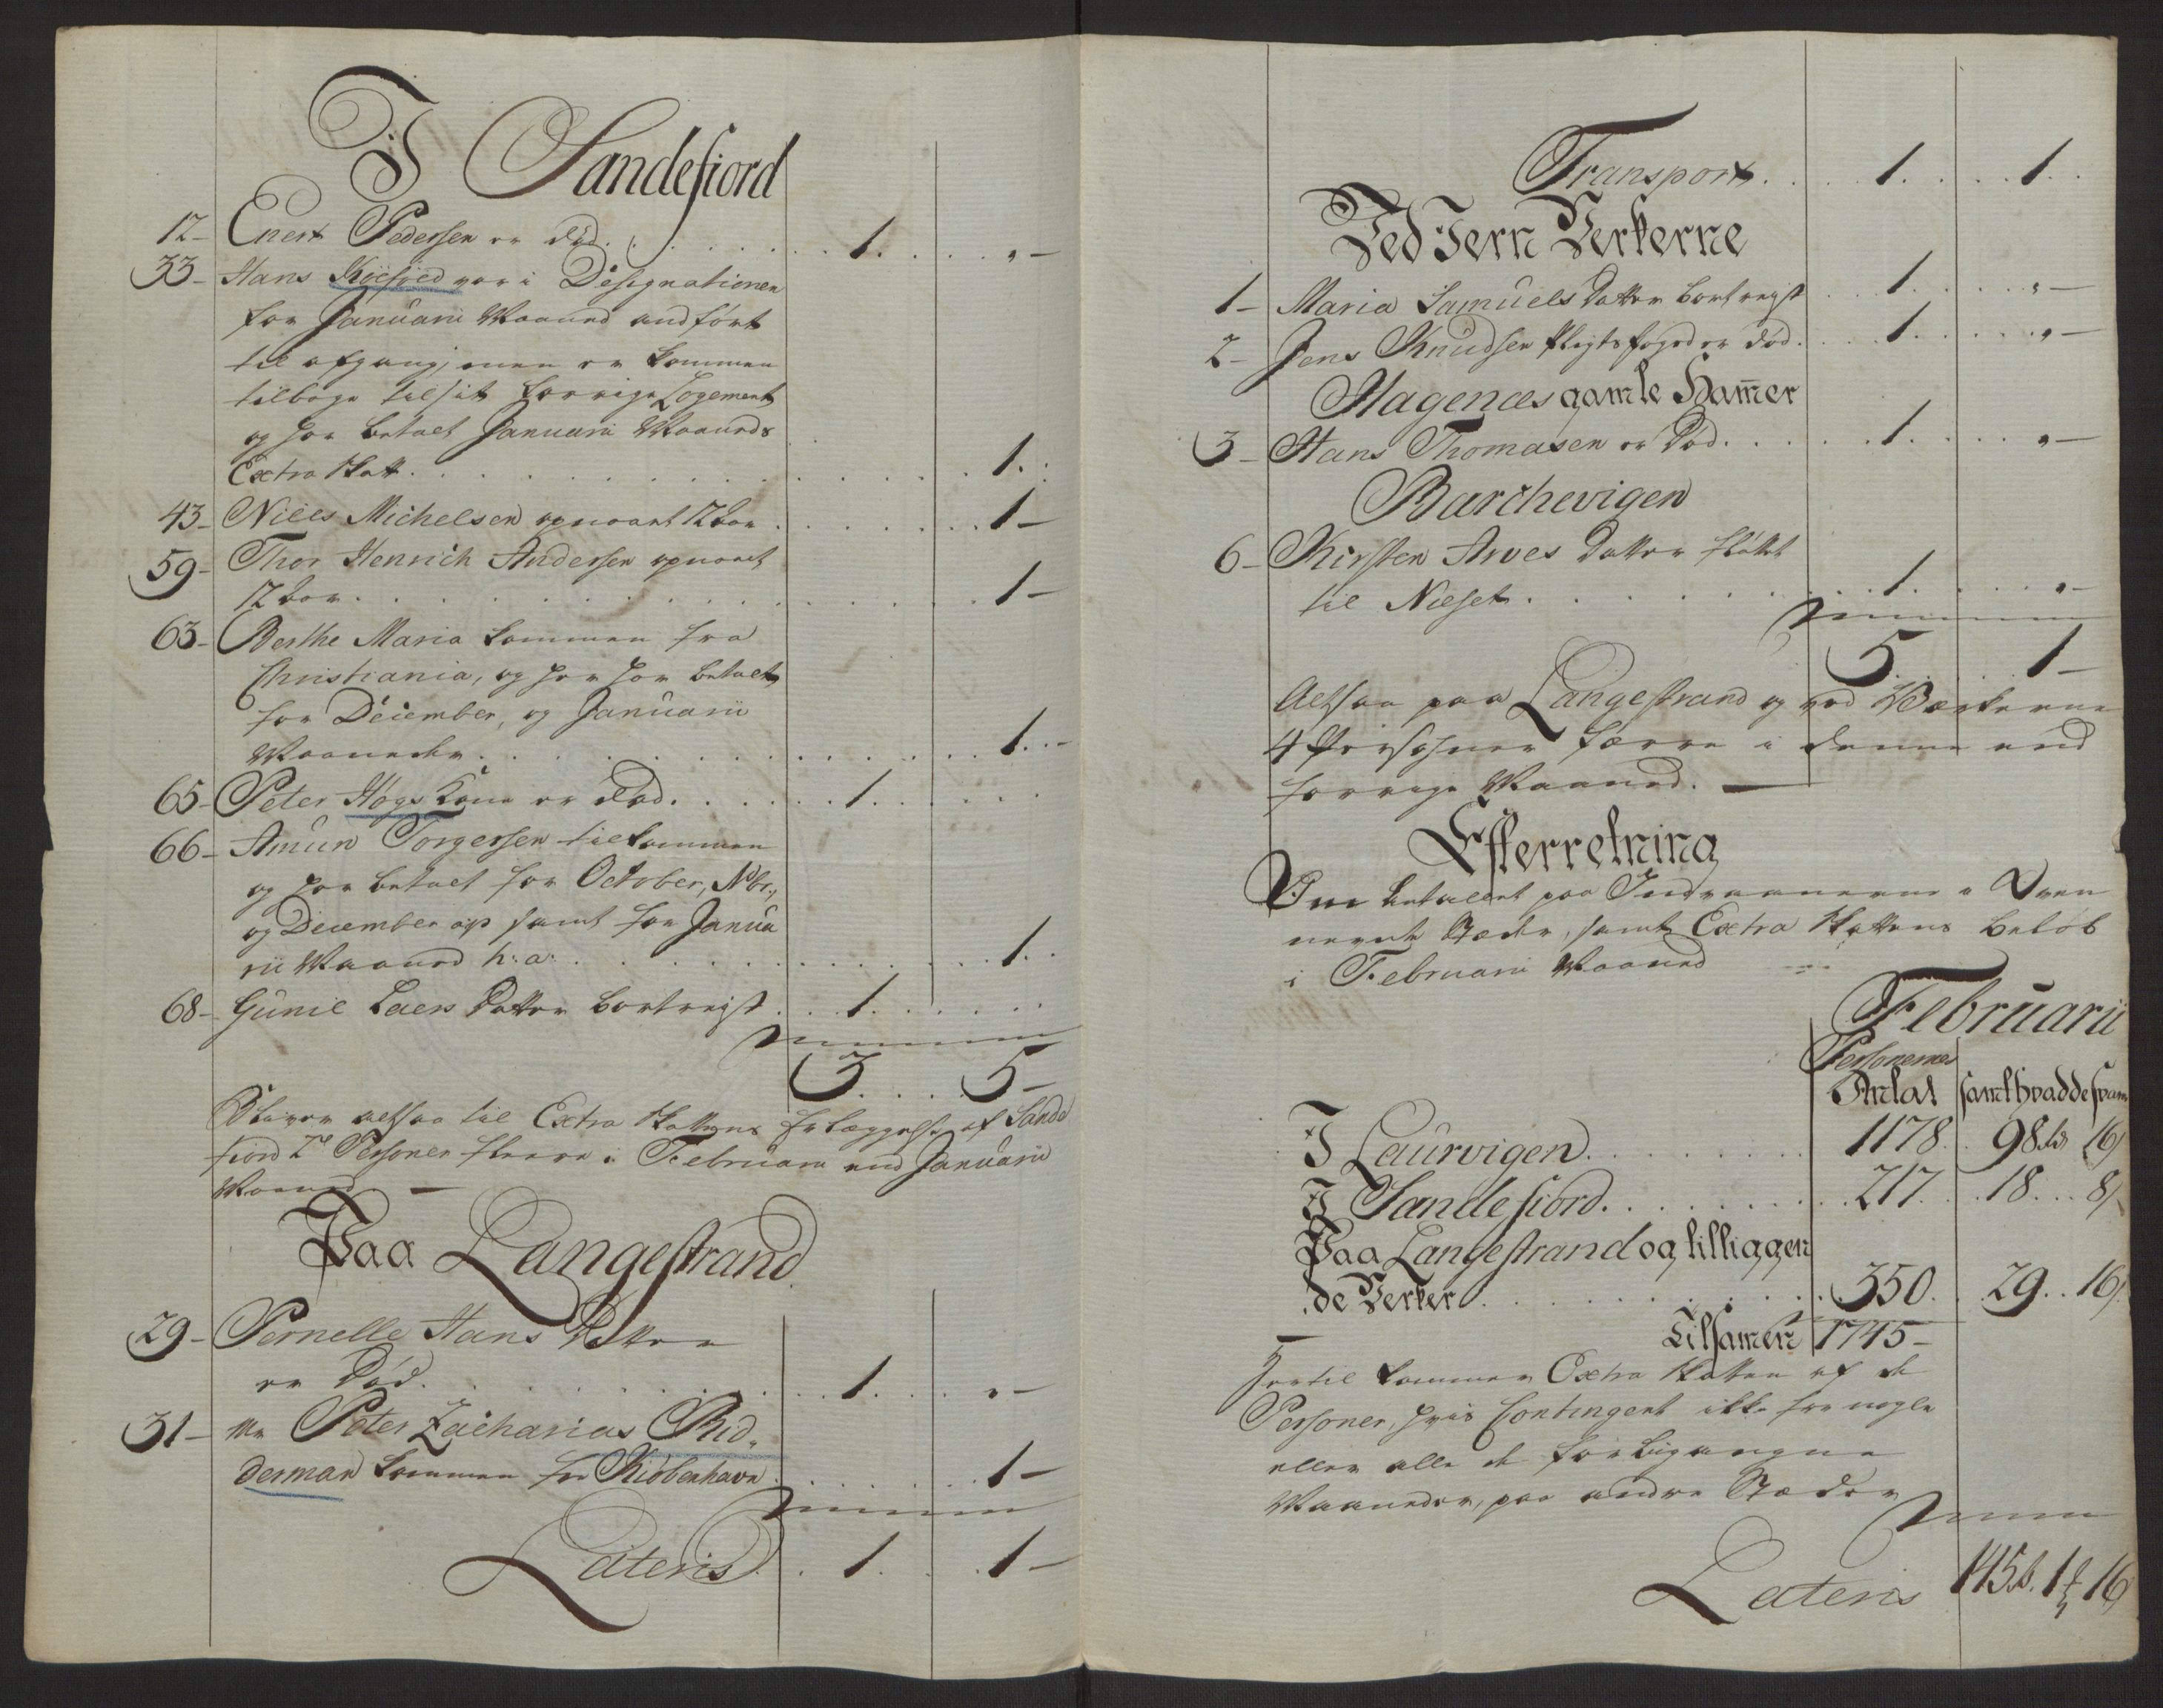 I Sandefiord
12- Enert Pedersen er død. . . . . . . . 1. . . . . "-
33- Hans Kiesed var i Designationen
for Januarii Maaned andført
til afgang, men er kommen
tilbage til sit forrige Logement
og har betalt Januarii Maaneds
Extra Skatt. . . . . . . . . 1. .
43- Niels Michelsen opnaaet 12 Aar . . . . . 1-
59- Thor Henrich Andersen opnaaet
12 Aar. . . . . . . . . . . 1-
63- Berthe Maria kommen fra
Christiania, og har her betalt
for December, og Januarii
Maaneder. . . . . . . . . . 1. . -
65- Peter Høgs Kone er død. . . . . . 1. . . . .
66- Amun Torgersen tilkommen
og har betalt for October, Nbr,,
og December samt for Janua
rii Maaned h: a: . . . . . . . 1. .
68- Gunil Laers Datter bortreyst . . . 1. . . . . .
3. . . . 5-
Bliver altsaa til Extra Skattens Erlæggelse af Sande
fiord 2de Personer fleere i Februarii end Januarii
Maaned —
Paa Langestrand
29- Pernelle Hans Datter
er Død. . . . . . . . . 1. . . . "-
31- Mr Peter Zacharias Rid„
derman kommen fra Kiøbenhavn . . . . . 1-
Lateris . . 1. . . . 1-
Transport. . . . 1. . . . . 1. .
Ved Jern Verkerne
1- Maria Samuels Datter bortreyst . . 1. . . . . "-
2- Jens Knudsen Pligtsfoged er død. . . . 1. . . . . "-
Hagenæs gamle Ham̄er
3- Hans Thomasen er Død. . . . . . 1. . . . "-
Barchevigen
6- Kirsten Arves Datter fløttet
til Nilset. . . . . . . . 1. . . . "-
5. . . . 1-
Altsaa paa Langestrand og ved Værkerne
4 Persohner færre i denne end
forrige Maaned. —
Efterretning
Om betalent paa Indvaanerne i Oven
nevnte Stæder, samt Extra Skattens beløb
i Februarii Maaned
Februarii
Personernes
Antal samt hvad de svare
I Laurvigen. . . . . . . . 1178. . 98 rd 16
I Sandefiord. . . . . . . . . 217. . . 18. . . 8
Paa Langestrand og tilliggen
de Verker . . . . . . . . . 350. . 29. . 16
Tilsamen 1745-
Hertil kommer Extra Skatten af de
Personer, hvis Contingent ikke for nogle
eller alle de forbigangne
Maaneder, paa andre Stæder
Lateris 145 1 16